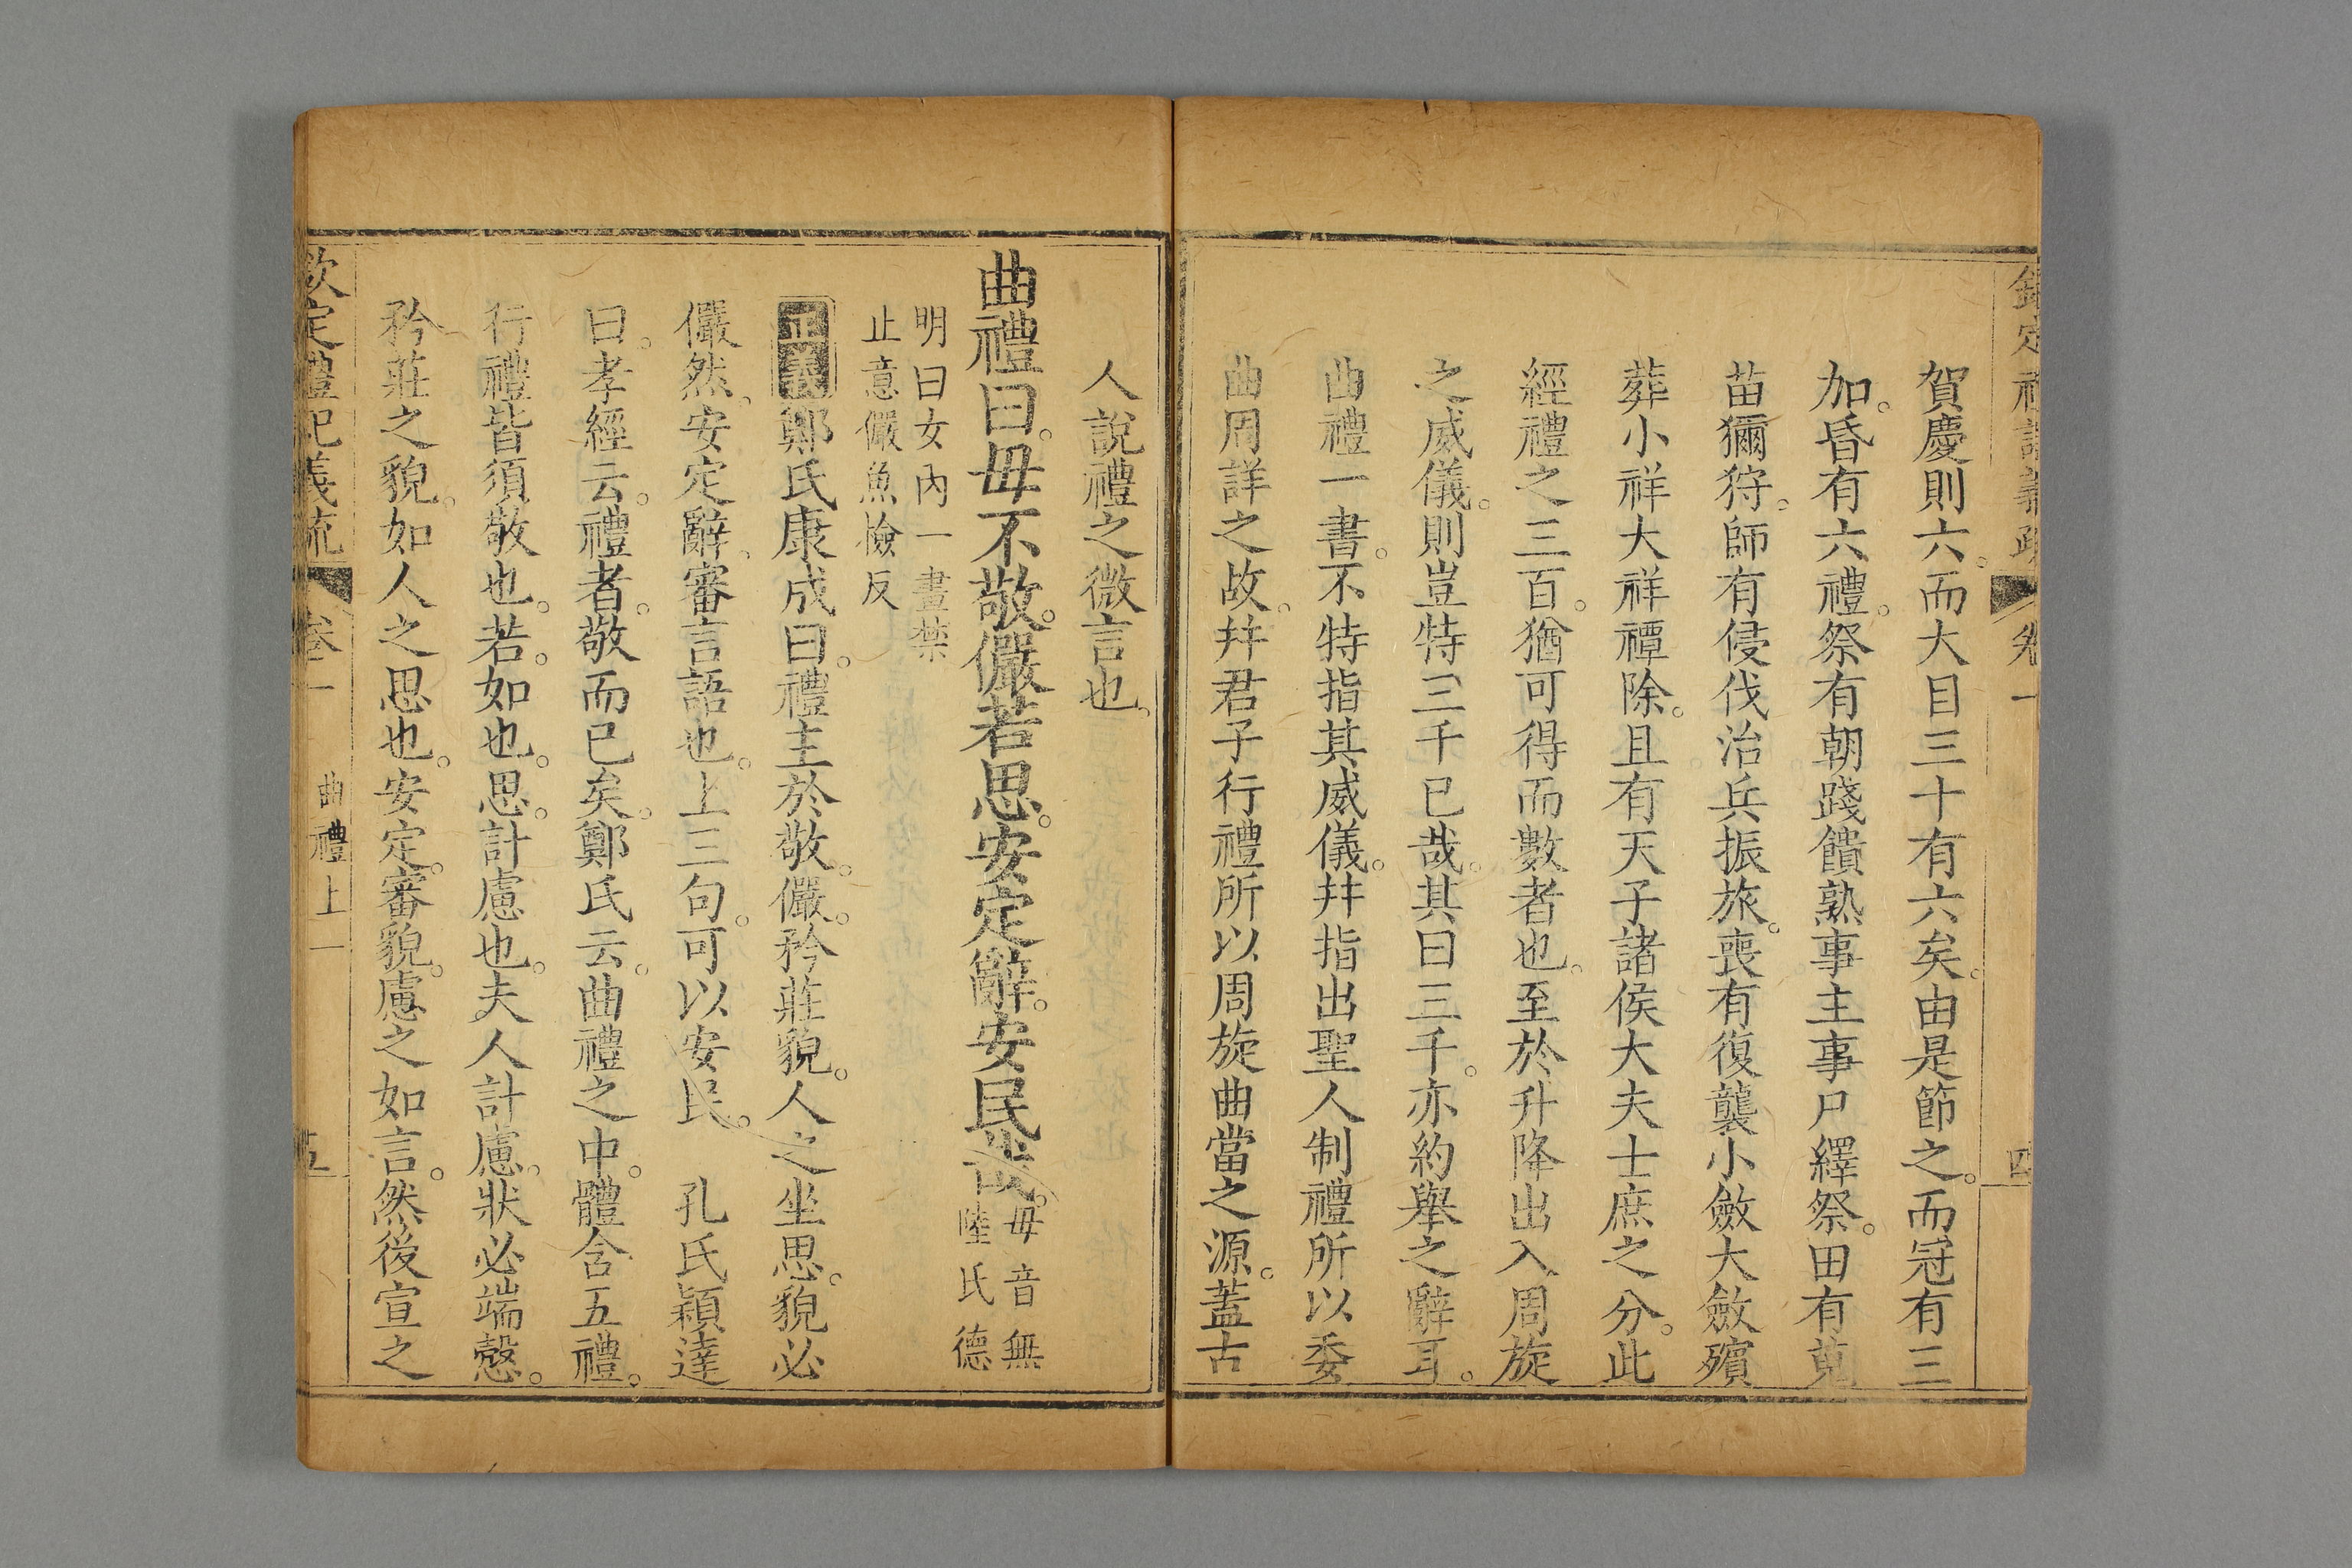 賀慶則六。而大目三十有六矣。由是節之。而冠有三
加。昏有六禮。祭有朝踐饋熟事主事尸繹祭。田有蒐
苗獮狩。師有侵伐治兵振旅。喪有復襲小斂大斂殯
葬小祥大祥禫除。且有天子諸侯大夫士庶之分。此
經禮之三百。猶可得而數者也。至於升降出入周旋
之威儀。則豈特三千已哉。其曰三千。亦約舉之辭耳。
曲禮一書。不特指其威儀。幷指出聖人制禮所以委
曲周詳之故。幷君子行禮所以周旋曲當之源。蓋古
人說禮之微言也。
曲禮曰。毋不敬。儼若思。安定辭。安民哉。毋音無
陸氏德
明曰女內一畫禁
止意儼魚檢反
正義鄭氏康成曰。禮主於敬。儼。矜莊貌。人之坐思。貌必
儼然。安定辭。審言語也。上三句。可以安民。 孔氏穎達
曰。孝經云。禮者。敬而已矣。鄭氏云。曲禮之中。體含五禮。
行禮皆須敬也。若。如也。思。計慮也。夫人計慮。狀必端慤。
矜莊之貌。如人之思也。安定。審貌。慮之如言。然後宣之
欽定禮記義疏 卷一 曲禮上一 五